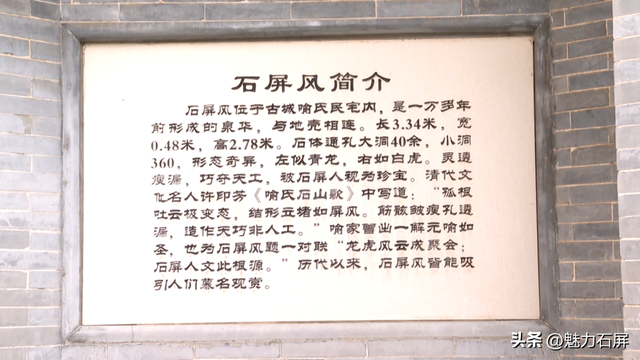 石屏风简介
石屏风位于古城喻氏民宅内，是一万多年
前形成的泉华，与地壳相连。长3.34米，宽
0.48米，高2.78米。石体通孔大洞40余，小洞
360，形态奇异，左似青龙，右如白虎。灵透
瘦漏，巧夺天工，被石屏人视为珍宝。清代文
化名人许印芳《喻氏石山歌》中写道："孤根
吐云极变态，结形立堵如屏风。筋骸皴瘦孔透
漏，造作天巧非人工。"喻家曾出一解元喻如
圣，也为石屏风题一对联"龙虎风云成聚会；
石屏人文此根源。"历代以来，石屏风皆能吸
引人们慕名观赏。
头条 @魅力石屏